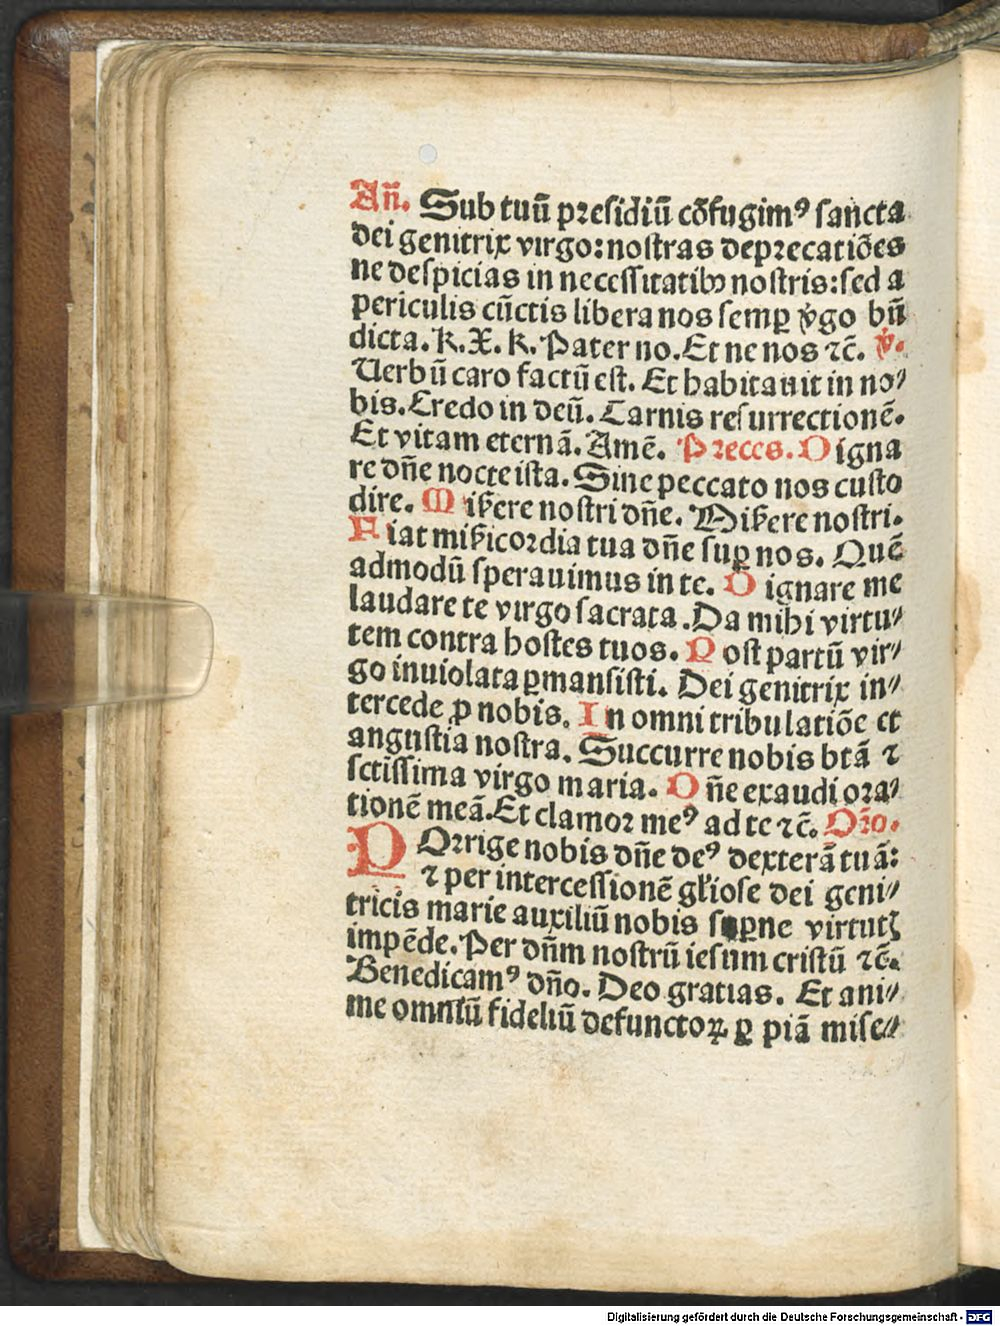 Añ. Sub tuū presidiū cōfugimꝰ sancta
dei genitrix virgo: nostras deprecatiōes
ne despicias in necessitatibꝫ nostris: sed a
periculis cūctis libera nos semꝑ v̇go bñ
dicta. k. X. k. Pater no. Et ne nos ⁊c̄. v̇.
Uerbū caro factū est. Et habitauit in no⸗
bis. Credo in deū. Carnis resurrectionē.
Et vitam eternā. Amē. Preces. Digna
re dñe nocte ista. Sine peccato nos custo
dire. Miẜere nostri dñe. Miẜere nostri.
Fiat miẜicordia tua dñe suꝑ nos. Quē
admodū sperauimus in te. Dignare me
laudare te virgo sacrata. Da mihi virtu⸗
tem contra hostes tuos. Post partū vir⸗
go inuiolata ꝑmansisti. Dei genitrix in⸗
tercede ꝓ nobis. In omni tribulatiōe et
angustia nostra. Succurre nobis btā ⁊
sctissima virgo maria. Dñe exaudi ora⸗
tionē meā. Et clamor meꝰ ad te ⁊c̄. Oro.
POrrige nobis dñe deꝰ dexterā tuā:
⁊ per intercessionē gl'iose dei geni⸗
tricis marie auxiliū nobis suꝑne virtutꝭ
impēde. Per dñm nostrū iesum cristū ⁊c̄.
Benedicamꝰ dño. Deo gratias. Et ani⸗
me omniū fideliū defunctoꝝ ꝑ piā mise⸗
Digitalisierung gefördert durch die Deutsche Forschungsgemeinschaft - DFG